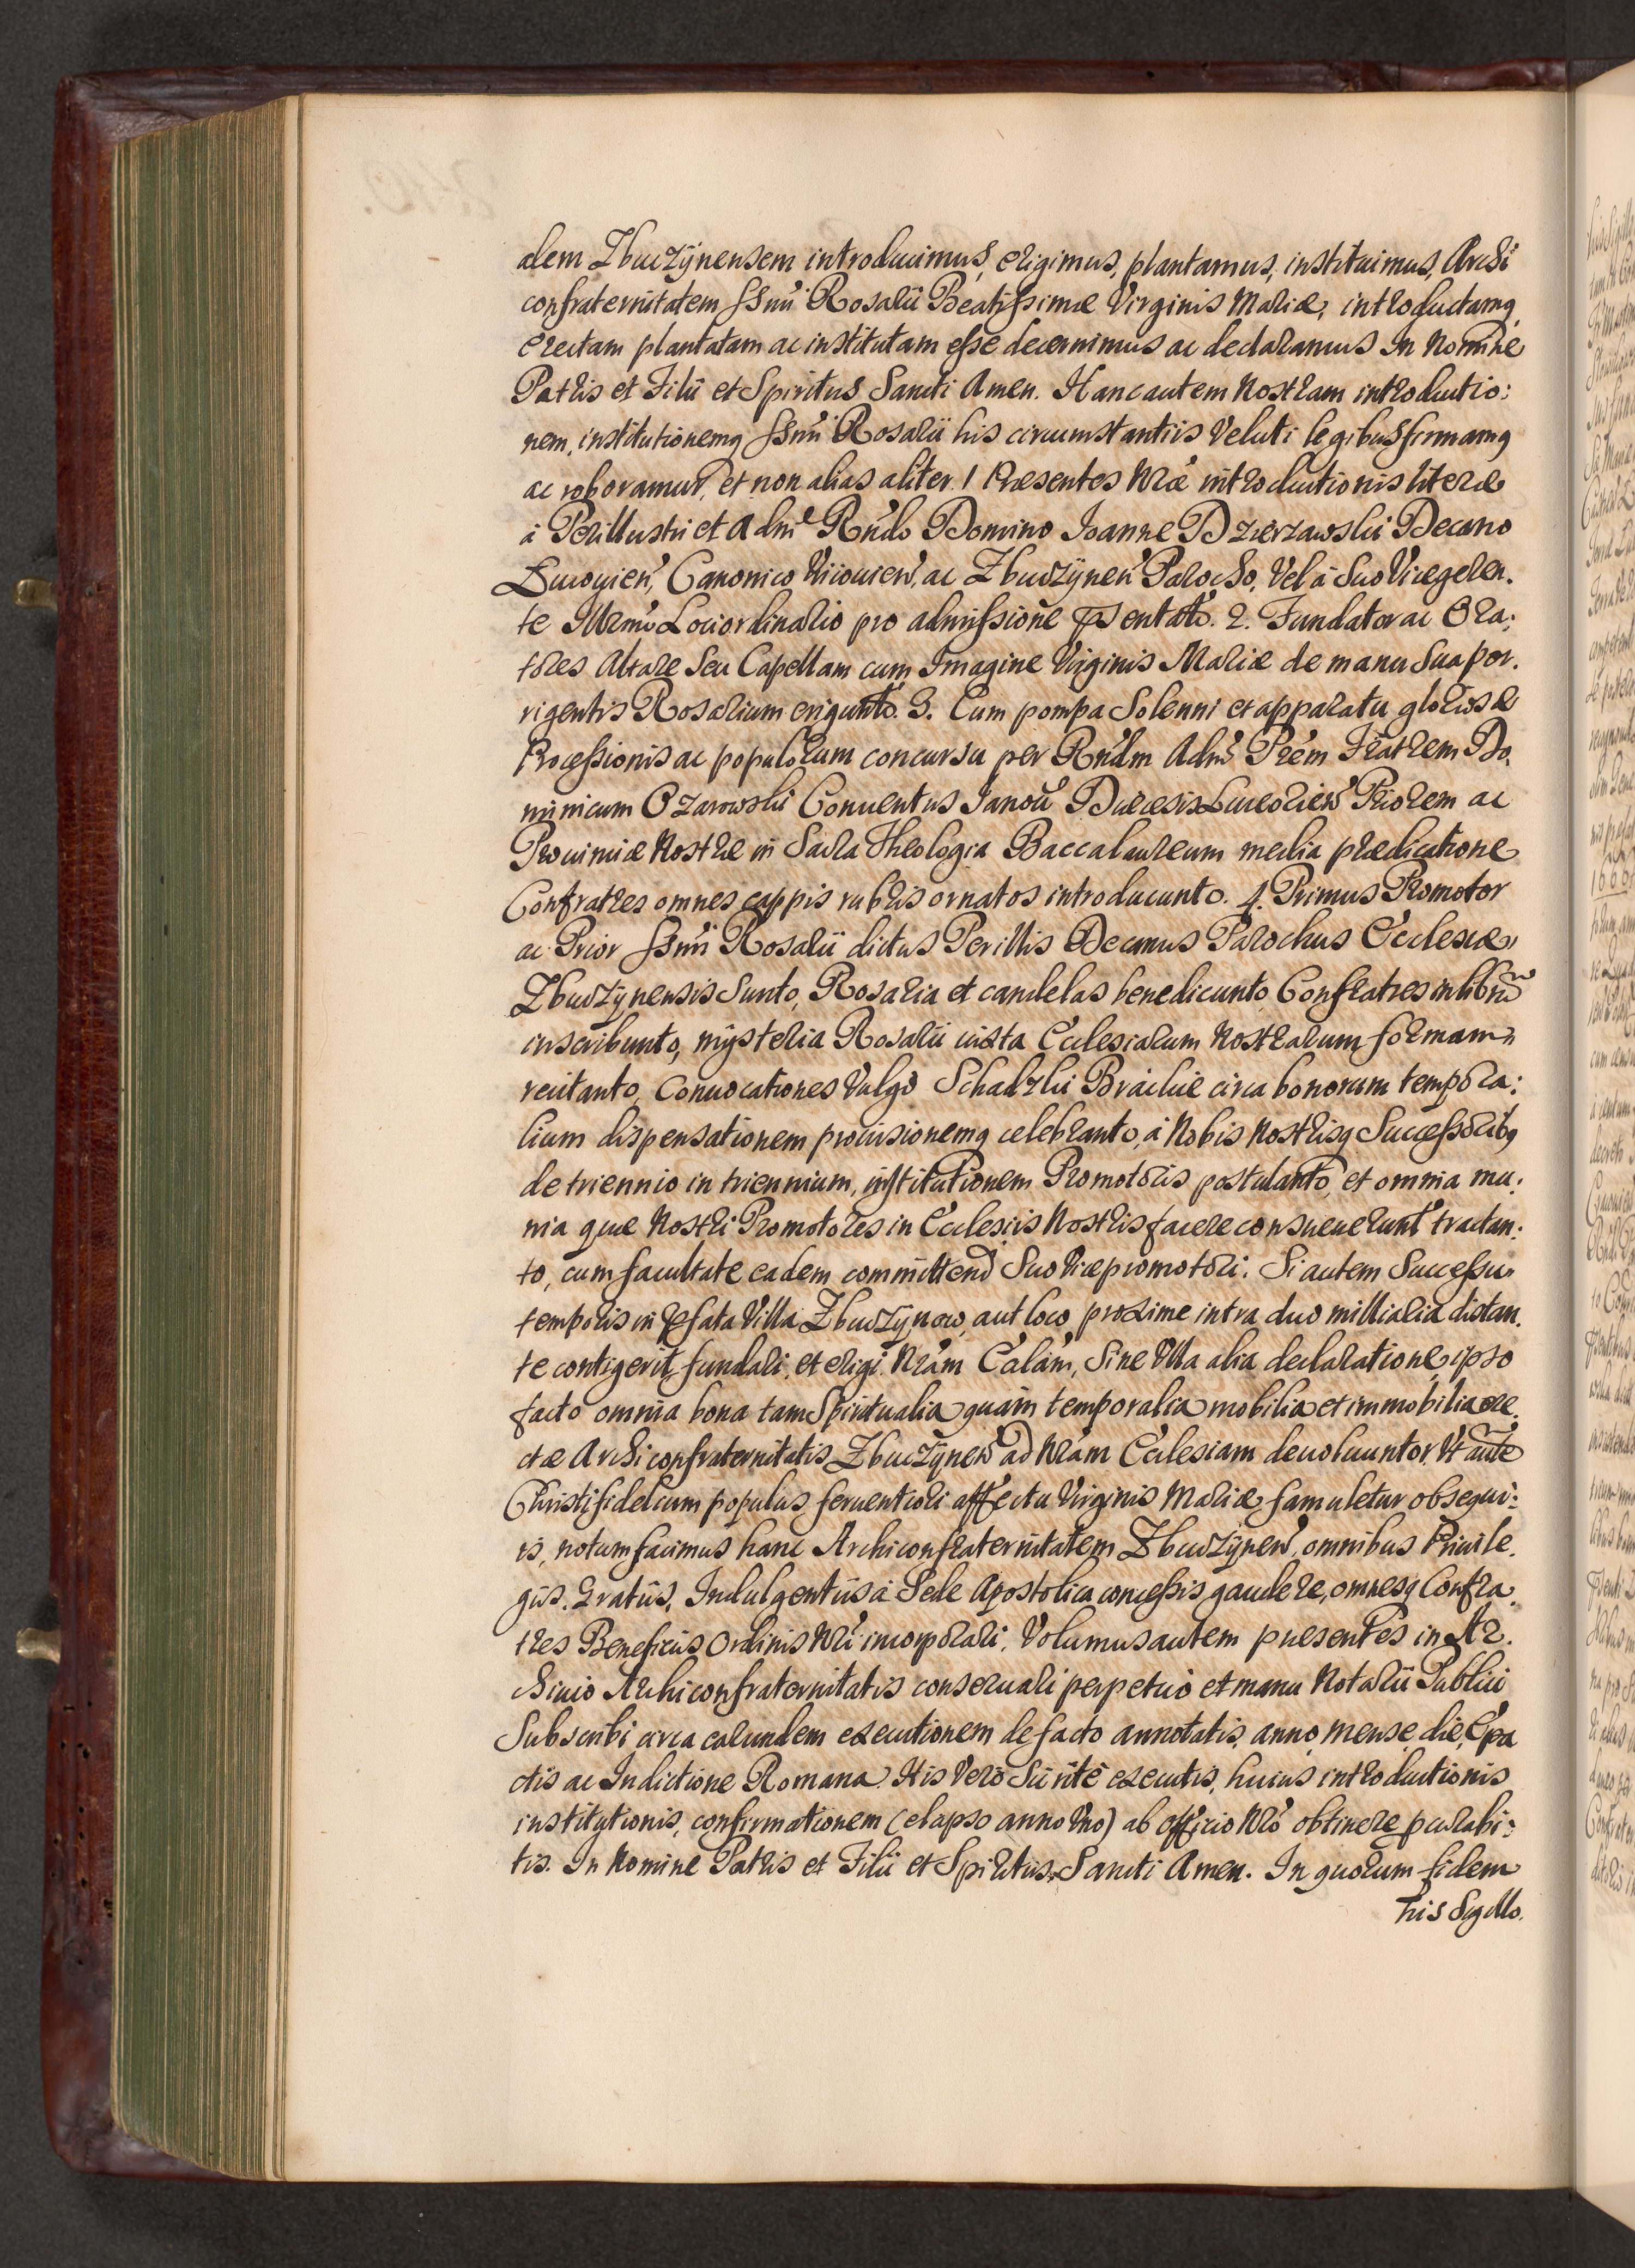 alem Zbuczÿnensem introducimus, erigimus, plantamus, instituimus, Archi
confraternitatem SSmi Rosarii Beatissimæ Virginis Mariæ, introductamq
Erectam plantatam ac institutam esse decernimus ac declaramus In Nomine
Patris et Filii et Spiritus Sancti Amen. Hanc autem Nostram introductio:
nem, institutionemq SSmi Rosarii his circumstantiis Veluti legibus firmamq
ac roboramus, et non alias aliter. 1 Præsentes Nræ introductionis literæ
à Perillustri et Admd Rndo Domino Joanne Dzierzawski Decano
Lucoyien, Canonico Kiiovien, ac Zbuczÿnen Parocho, Vel à Suo Vicegeren.
te Illrmo Loci ordinario pro admissione psentato. 2. Fundator ac Ora:
tores Altare Seu Capellam cum Imagine Virginis Mariæ de manu Sua por.
rigentis Rosarium erigunto. 3. Cum pompa Solenni et apparatu gloriosæ
Processionis ac populorum concursu per Rndm Admd Prem Fratrem Do.
minicum Ozarowski Conventus Janovi Diæcesis Luceorien Priorem ac
Provinciæ Nostræ in Sacra Theologia Baccalaureum media prædicatione
Confratres omnes cappis rubris ornatos introducunto. 4. Primus Promotor
ac Prior SSmi Rosarii dictus Perillis Decanus Parochus Ecclesiæ
Zbuczÿnensis Sunto, Rosaria et candelas benedicunto, Confratres in librũ
inscribunto, mÿsteria Rosarii iuxta Ecclesiarum Nostrarum formam
recitanto, Convocationes Vulgò Schadzki Brackie circa bonorum tempora:
lium dispensationem provisionemq celebranto, à Nobis Nostrisq Successoribq
de triennio in triennium, institutionem Promotoris postulanto, et omnia mu:
nia quæ Nostri Promotores in Ecclesiis Nostris facere consueverunt tractan:
to, cum facultate eadem committend Suo Vicepromotori. Si autem Successu
temporis in Pfata Villa Zbuczÿnow, aut loco proxime intra duo milliaria distan.
te contigerit fundari, et erigi Nram Ecclam, Sine Ulla alia declaratione ipso
facto omnia bona tam Spiritualia quàm temporalia mobilia et immobilia ere.
ctæ Archiconfraternitatis Zbuczÿnen ad Nram Ecclesiam devoluuntor. Vt aute
Christifidelium populus ferventiori affectu Virginis Mariæ famuletur obsequi:
is, notum facimus hanc Archiconfraternitatem Zbuczÿnen, omnibus Privile.
giis, Gratiis, Indulgentiis à Sede Apostolica concessis gaudere, omnesq Confra.
tres Beneficiis Ordinis Nri incorporari. Volumus autem præsentes in Ar.
chivio Archiconfraternitatis conservari perpetuò et manu Notarii Publici
Subscribi circa earundem executionem de facto annotatis, anno, mense, die, Epa
ctis ac Indictione Romana. His Verò Sic ritè executis, huius introductionis
institutionis, confirmationem (elapso anno Uno) ab officio Nro obtinere pcurabi:
tis. In Nomine Patris et Filii et Spiritus Sancti Amen. In quorum fidem
his Sigillo.